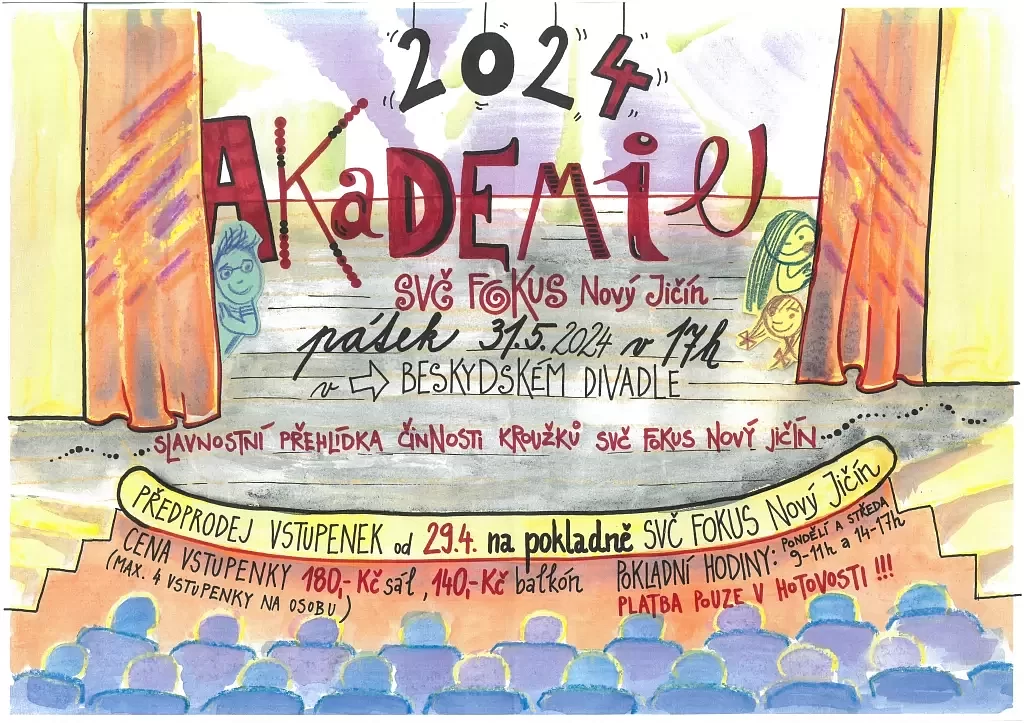 2024
AKaDEMiE
SVČ FOKUS Nový Jičín
pátek 31.5.2024 v 17h
v → BESKYDSKÉM DIVADLE
SLAVNOSTNÍ PŘEHLÍDKA ČINNOSTI KROUŽKŮ SVČ FOKUS NOVÝ JIČÍN
PŘEDPRODEJ VSTUPENEK od 29.4. na pokladně SVČ FOKUS Nový Jičín
CENA VSTUPENKY 180,- Kč sál, 140,- Kč balkón
(MAX. 4 VSTUPENKY NA OSOBU)
POKLADNÍ HODINY: PONDĚLÍ A STŘEDA
9-11h a 14-17h
PLATBA POUZE V HOTOVOSTI !!!